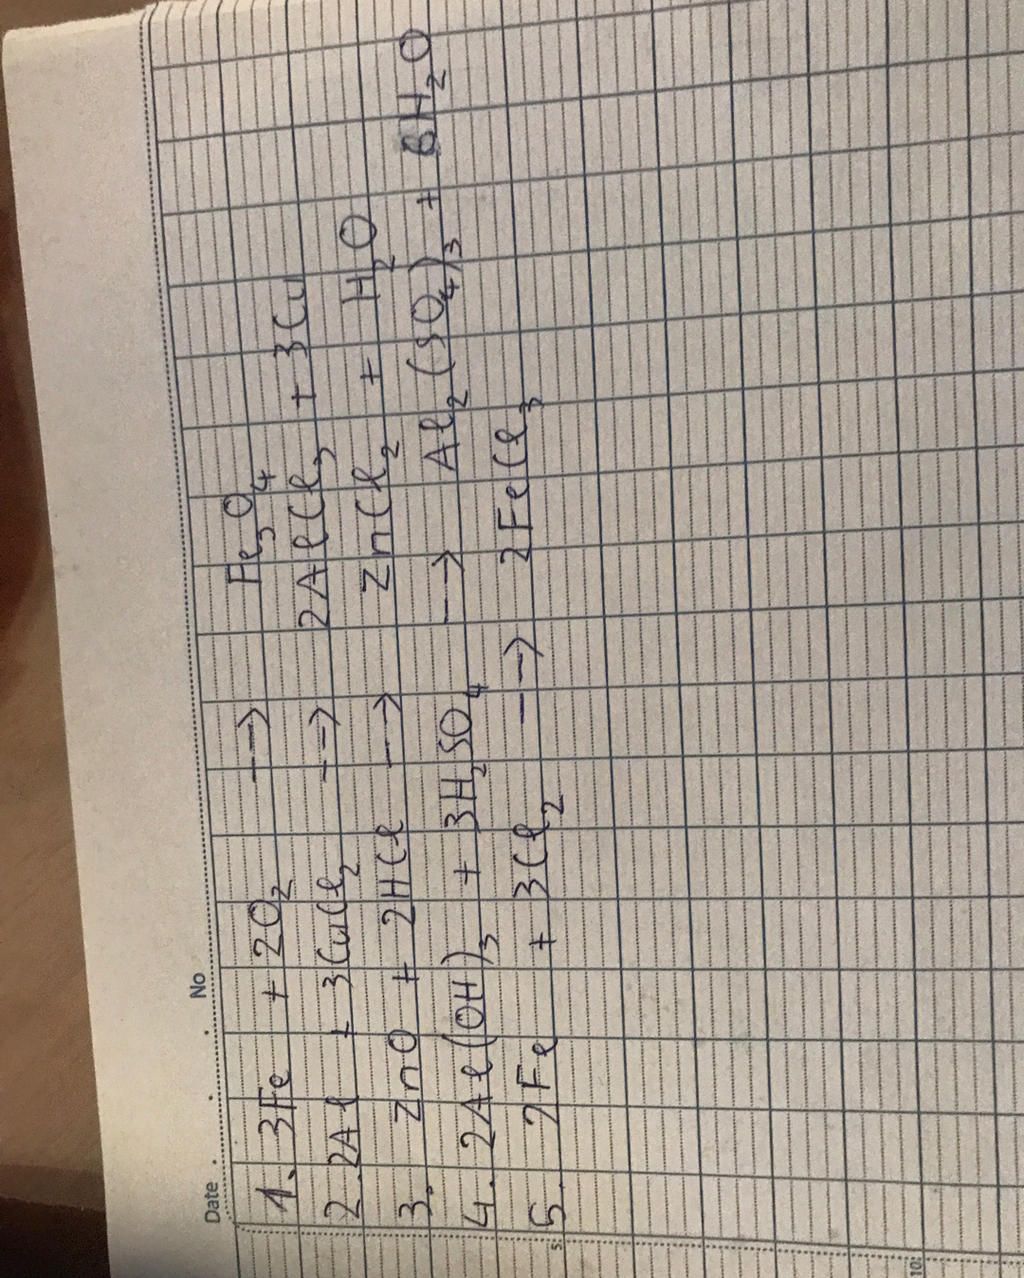 Date . . . No
1. 3Fe + 2O₂ --→ Fe₃O₄
2. 2Al + 3CuCl₂ --→ 2AlCl₃ + 3Cu
3. ZnO + 2HCl --→ ZnCl₂ + H₂O
4. 2Al(OH)₃ + 3H₂SO₄ --→ Al₂(SO₄)₃ + 6H₂O
5. 2Fe + 3Cl₂ --→ 2FeCl₃
5:
10: